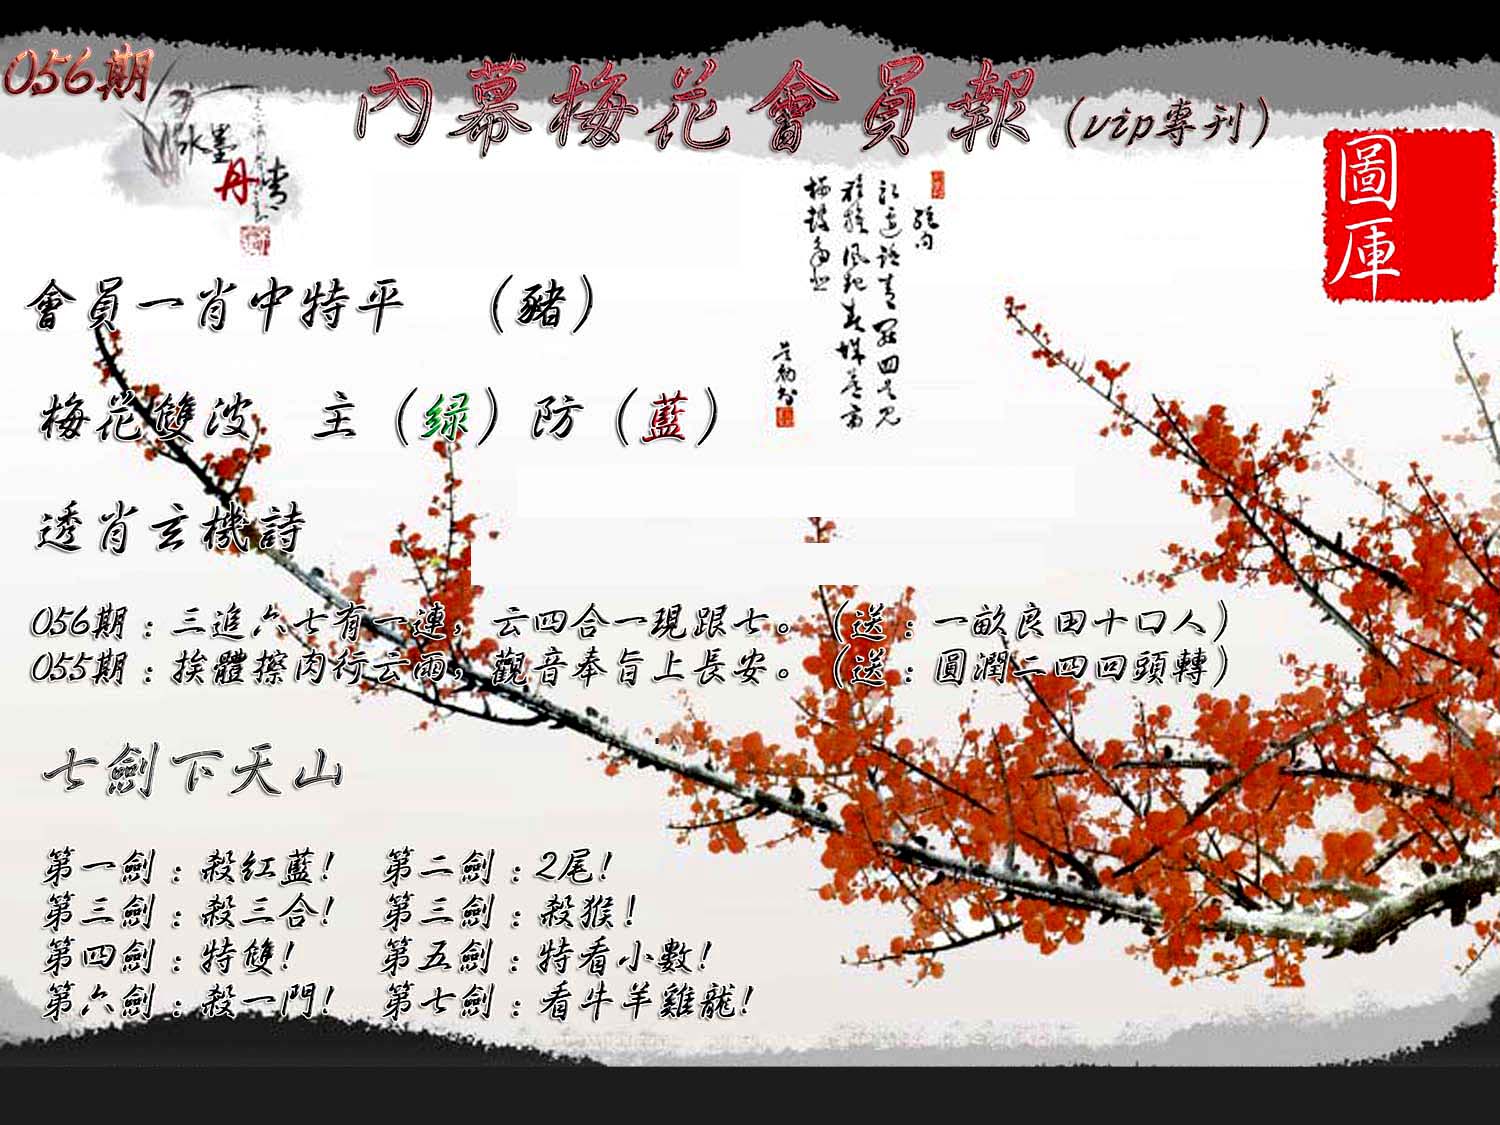 056期
內幕梅花會員報（vip專刊）
水墨
丹情
圖庫
會員一肖中特平 （豬）
梅花雙波 主（绿）防（藍）
透肖玄機詩
056期：三進六七有一連，云四合一現跟七。（送：一畝良田十口人）
055期：挨體擦肉行云雨，觀音奉旨上長安。（送：圓潤二四回頭轉）
七劍下天山
第一劍：殺紅藍！ 第二劍：2尾！
第三劍：殺三合！ 第三劍：殺猴！
第四劍：特雙！ 第五劍：特看小數！
第六劍：殺一門！ 第七劍：看牛羊雞龍！